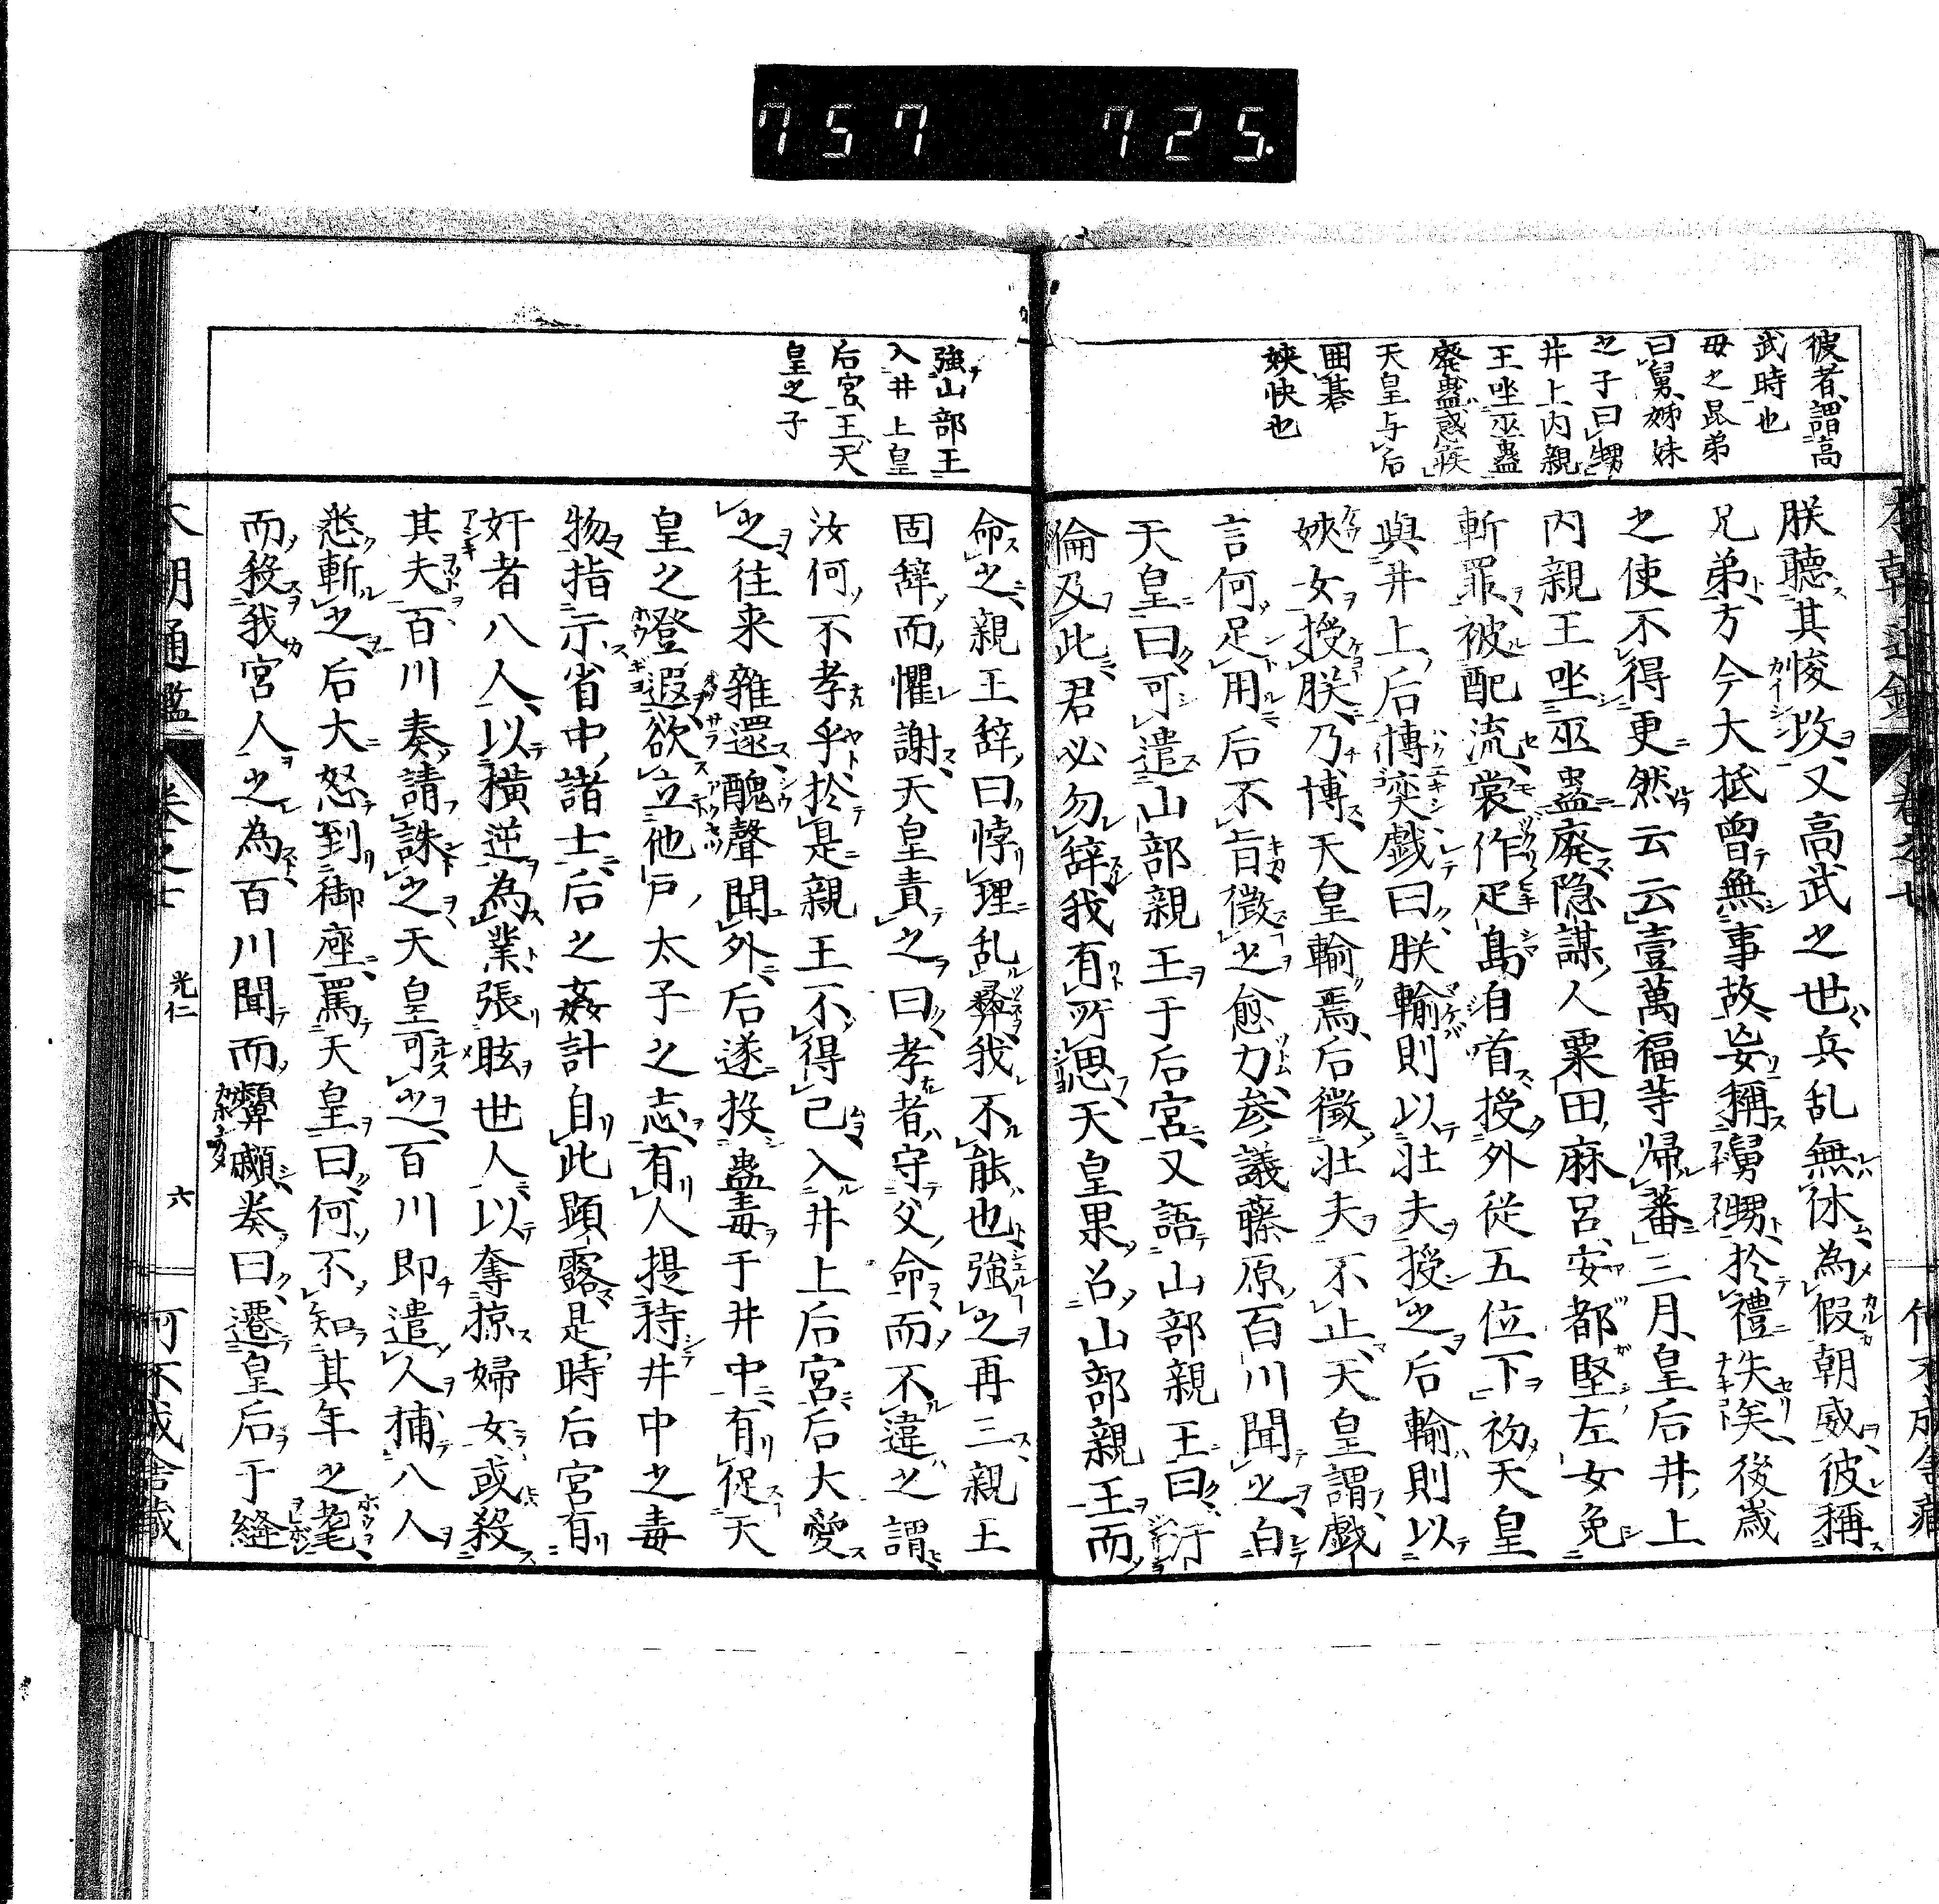 757 725.
彼者謂高
武時也
母之昆弟
曰舅姊妹
之子曰甥
井上内親
王坐巫蠱
廃蠱惑疾
天皇与后
囲碁
姎快也
朕聴其悛改又高武之世兵乱無休為假朝威彼稱
兄弟方今大抵曽無事故妄稱舅甥於禮失矣後歳
之使不得更然云云壹萬福等帰蕃三月皇后井上
内親王坐巫蠱廃隠謀人粟田麻呂安都堅左女免
斬罪被配流裳作足島自首授外従五位下初天皇
與井上后博奕戯曰朕輸則以壮夫授之后輸則以
姎女授朕乃博天皇輸焉后徴壮夫不止天皇謂戯
言何足用后不旨徴之愈力参議藤原百川聞之白
天皇曰可遣山部親王于后宮又語山部親王曰
倫及此君必勿辞我有所思天皇果召山部親王而
強山部王
入井上皇
后宮王天
皇之子
命之親王辞曰悖理乱彝我不能也強之再三親王
固辞而懼謝天皇責之曰孝者守父命而不違之謂
汝何不孝乎於是親王不得已入井上后宮后大愛
之往来雑還醜聲聞外后遂投蠱毒于井中有促天
皇之登遐欲立他戸太子之志有人提持井中之毒
物指示省中諸士后之姦計自此顕露是時后宮有
奸者八人以横逆為業張眩世人以奪掠婦女或殺
其夫百川奏請誅之天皇可之百川即遣人捕八人
悉斬之后大怒到御座罵天皇曰何不知其年之耄
而殺我宮人之為百川聞而顰顣奏曰遷皇后于縫
本朝通鑑 巻之七 光仁 六 何不成舎蔵